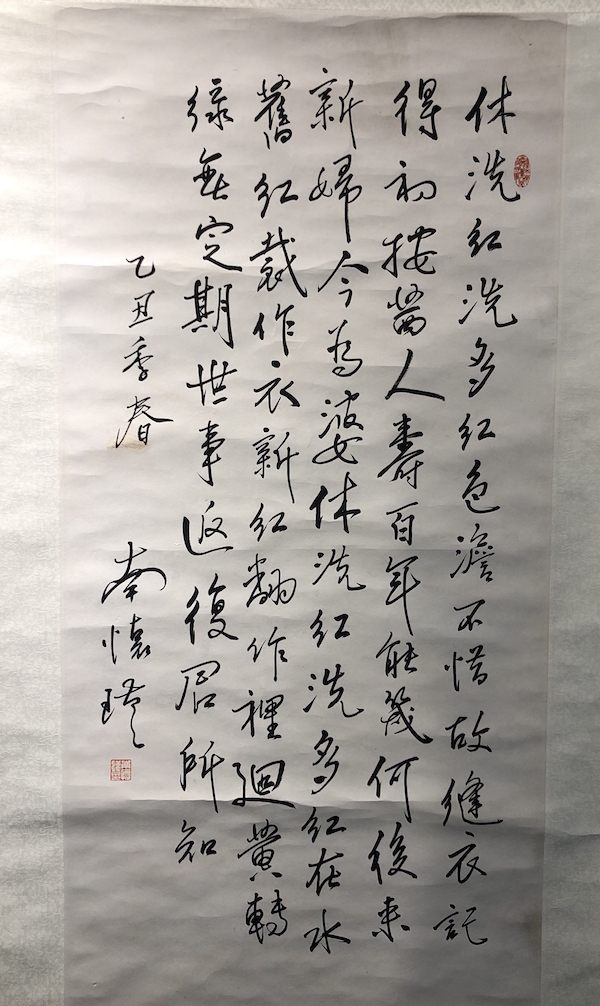 休洗紅洗多紅色澹不惜故縫衣記
得初按茜人壽百年能幾何後来
新婦今為婆休洗紅洗多紅在水
舊紅裁作衣新紅翻作裡迴黃轉
綠無定期世事返復君所知
乙丑季春
南懷瑾